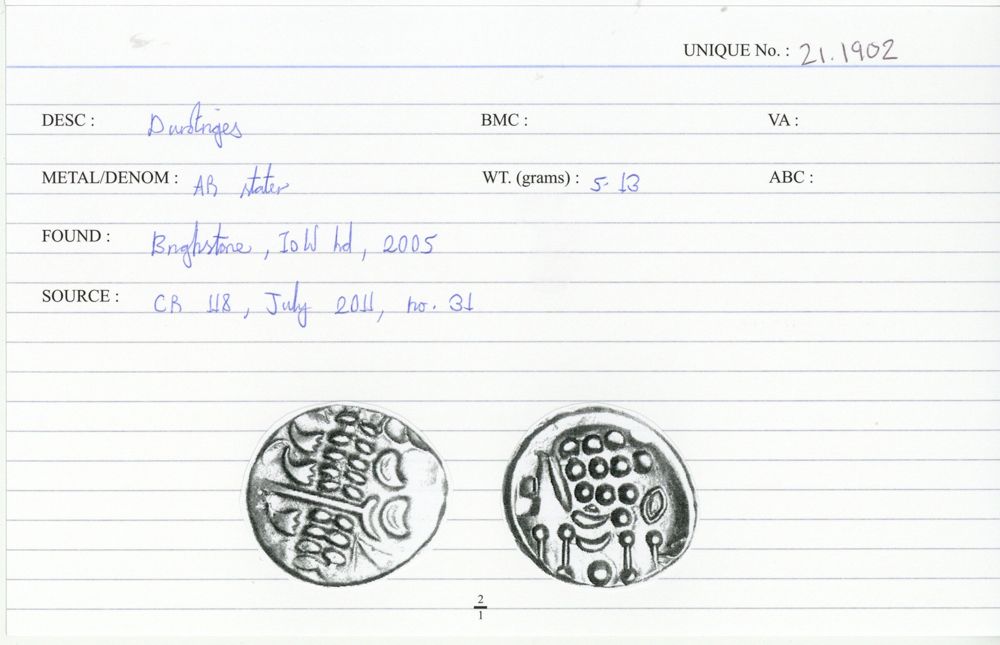 UNIQUE No. : 21.1902
DESC : Durotriges BMC : VA :
METAL/DENOM : AR stater WT. (grams) : 5.13 ABC :
FOUND : Brighstone, IoW hd, 2005
SOURCE : CR 118, July 2011, no. 31
2
1